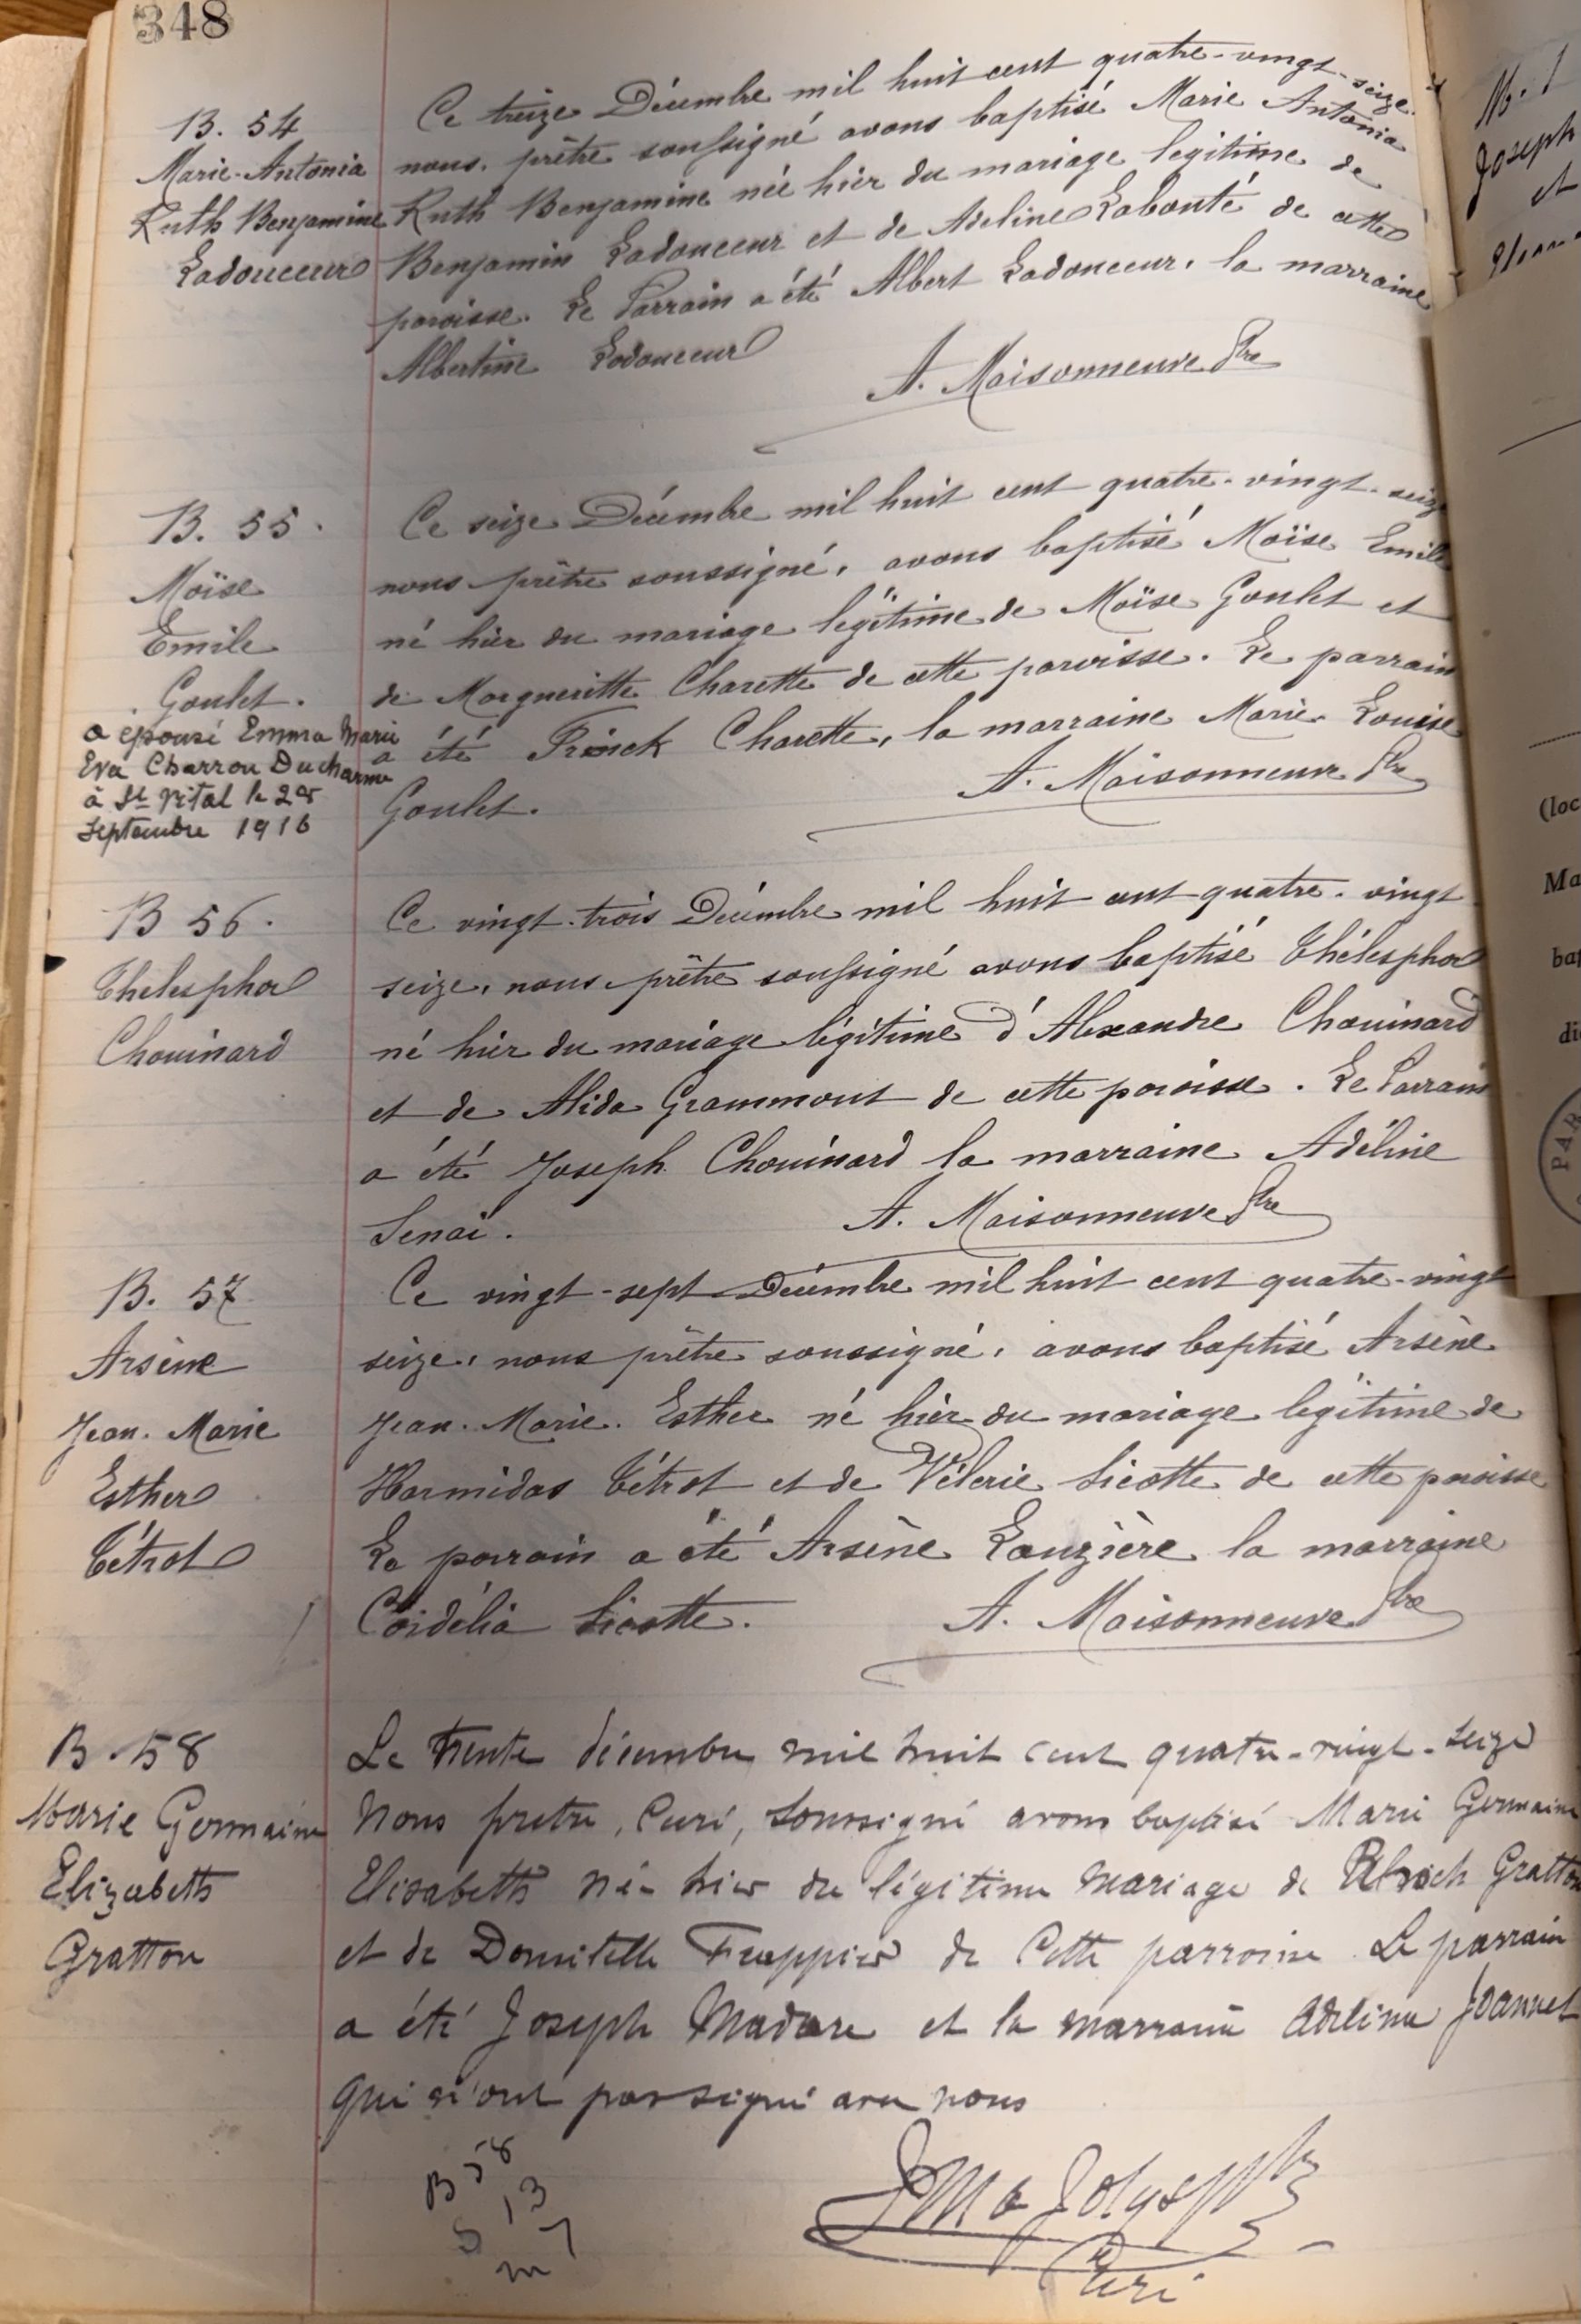 348
B. 54
Marie-Antonia
Ruth Benjamine
Ladouceur
Ce treize Décembre mil huit cent quatre-vingt-seize
nous, prêtre soussigné avons baptisé Marie Antonia
Ruth Benjamine née hier du mariage légitime de
Benjamin Ladouceur et de Adeline Labonté de cette
paroisse. Le Parrain a été Albert Ladouceur, la marraine
Albertine Ladouceur
A. Maisonneuve Ptre
B. 55.
Moïse
Emile
Goulet.
a épousé Emma Marie
Eva Charron Ducharme
à St Vital le 28
Septembre 1916
Ce seize Décembre mil huit cent quatre-vingt-seize
nous prêtre soussigné, avons baptisé Moïse Emile
né hier du mariage légitime de Moïse Goulet et
de Margueritte Charette de cette paroisse. Le parrain
a été Charette, la marraine Marie-Louise
Goulet.
A. Maisonneuve Ptre
B 56.
Thélesphor
Chouinard
Ce vingt-trois Décembre mil huit cent quatre-vingt
seize, nous prêtre soussigné avons baptisé Thélesphor
né hier du mariage légitime d'Alexandre Chouinard
et de Alida Grammont de cette paroisse. Le Parrain
a été Joseph Chouinard la marraine Adéline
Senai.
A. Maisonneuve Ptre
B. 57
Arsène
Jean-Marie
Esther
Tétrot
Ce vingt-sept Décembre mil huit cent quatre-vingt
seize, nous prêtre soussigné, avons baptisé Arsène
Jean-Marie. Esther né hier du mariage légitime de
Harmidas Tétrot et de Vélerie Sicotte de cette paroisse
Le parrain a été Arsène Lauzière la marraine
Cordélia Sicotte.
A. Maisonneuve Ptre
B. 58
Marie Germaine
Elizabeth
Gratton
Le trente décembre mil huit cent quatre-vingt-seize
Nous pretre, Curé, Soussigné avons baptisé Marie Germaine
Elisabeth né- hier du légitime mariage de Gratton
et de Domitelle Frappier de Cette parroisse Le parrain
a été Joseph Madore et la marraine Adelina Joannet
qui n'ont pas signé avec nous
B 58
S 13
m 7
Jolys Ptre
Curé
Joseph
et
(loc
Ma
bap
di
PAR